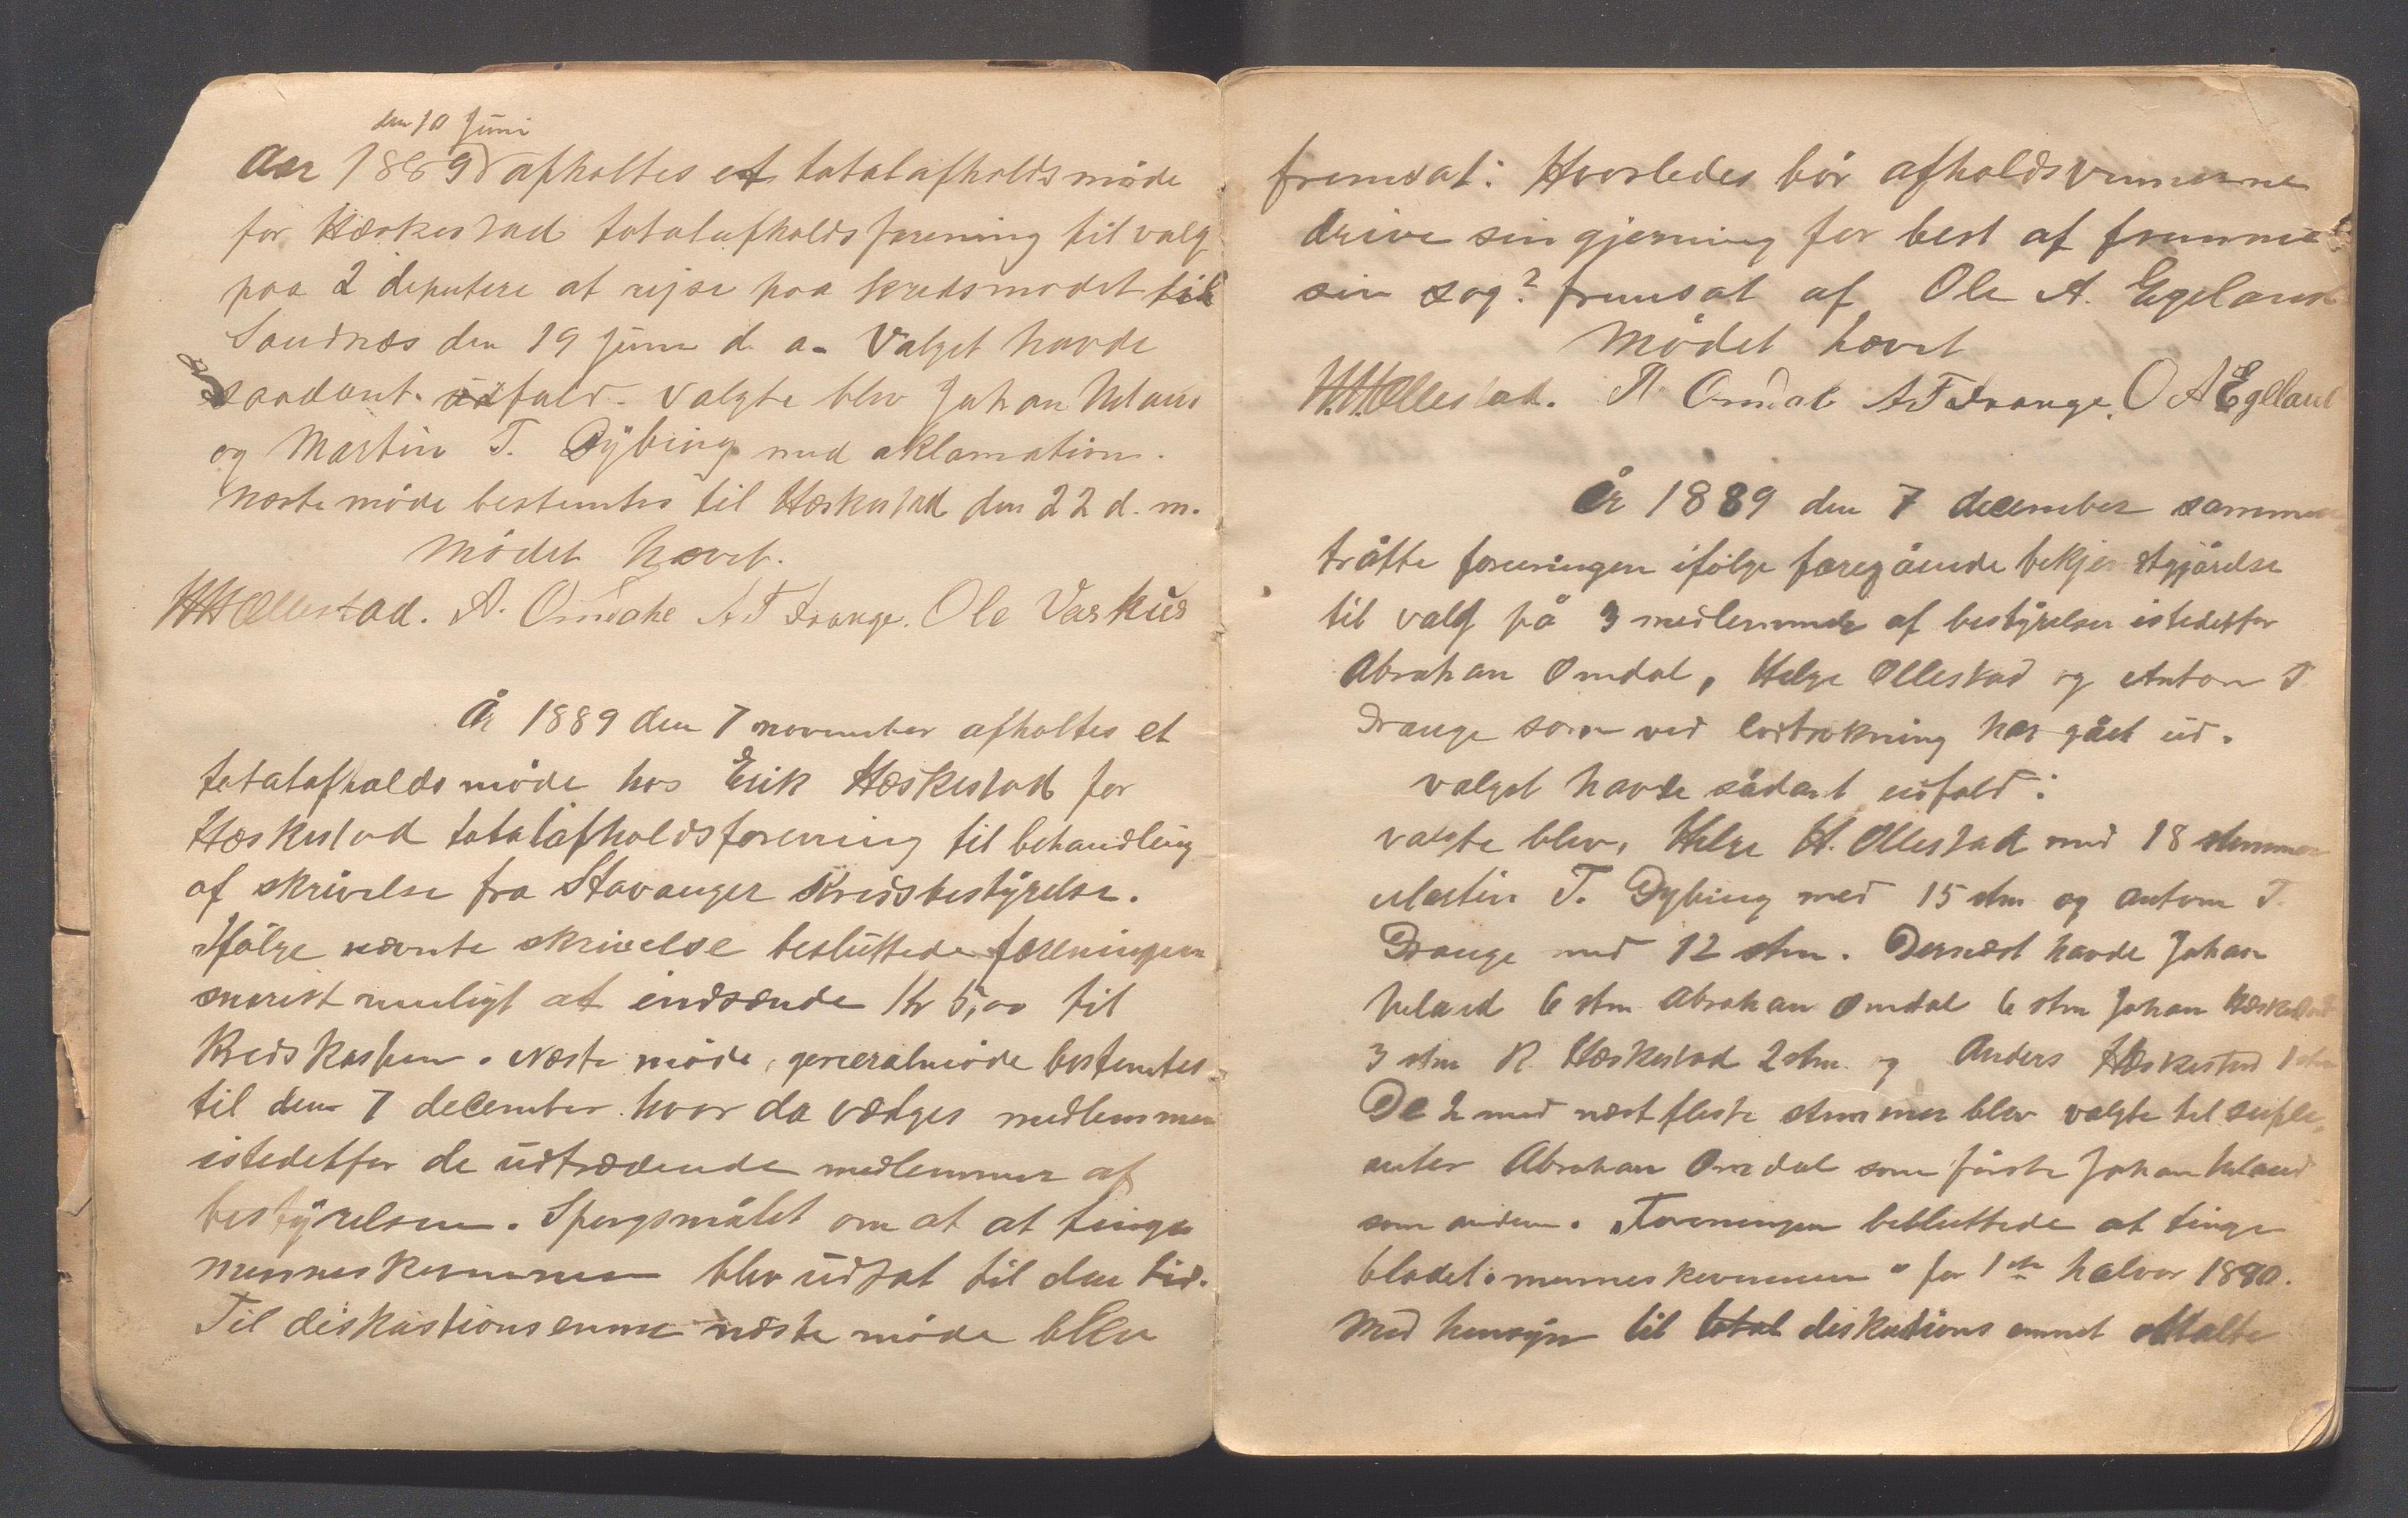 den 10 Juni
Aar 1889 afholtes et totalafholdsmöde
for Hæskestad totalafholdsforening til valg
paa 2 deputere at rejse paa kredsmødet til
Sandnæs den 19 Juni d. a. Valget havde
saadant udfald. Valgte blev Johan Veland
og Martin T. Dÿbing med aklamation.
næste möde bestemtes til Hæskestad den 22 d. m.
Mödet hævet.
HHOllestad. A. Omdahl A T Drange. Ole Vaskus
År 1889 den 7 november afholtes et
totalafholdsmöde hos Erik Hæskestad for
Hæskestad totalafholdsforening til behandling
af skrivelse fra Stavanger Kredsbestÿrelse.
Ifölge nævnte skrivelse besluttede foreningen
snarest muligt at indsænde Kr 5,00 til
Kredskassen. Næste möde, generalmöde bestemtes
til den 7 december hvor da vælges medlemmer
istedetfor de udtrædende medlemmer af
bestÿrelsen. Spørgsmålet om at at tinge
menneskevennen blev udsat til den tid.
Til diskustionsemne næste möde blev
fremsat: Hvorledes bör afholdsvennerne
drive sin gjerning for best af fremme
sin sag? fremsat af Ole A. Egeland
Mödet hævet
HHOllestad. A Omdal A T Drange. O A Egeland
År 1889 den 7 december sammen
tråtte foreningen ifölge foregående bekjentgjörelse
til valg på 3 medlemmer af bestÿrelsen istedetfor
Abrahan Omdal, Helge Ollestad og Anton T
Drange som ved lodtrækning har gået ud.
valget havde sådant udfald:
valgte blev, Helge H. Ollestad med 18 stemmer
Martin T. Dybing med 15 stm og Anton T.
Drange med 12 stm. Dernæst havde Johan
Veland 6 stm Abrahan Omdal 6 stm Johan Hæskestad
3 stm R. Hæskestad 2 stm. og Anders Hæskestad 1 stm
De 2 med næst fleste stemmer blev valgte til suple
anter Abrahan Omdal som förste Johan Veland
som anden. Foreningen besluttede at tinge
bladet "menneskevennen" for 1ste halvår 1890.
Med hensÿn til total diskutions emnet